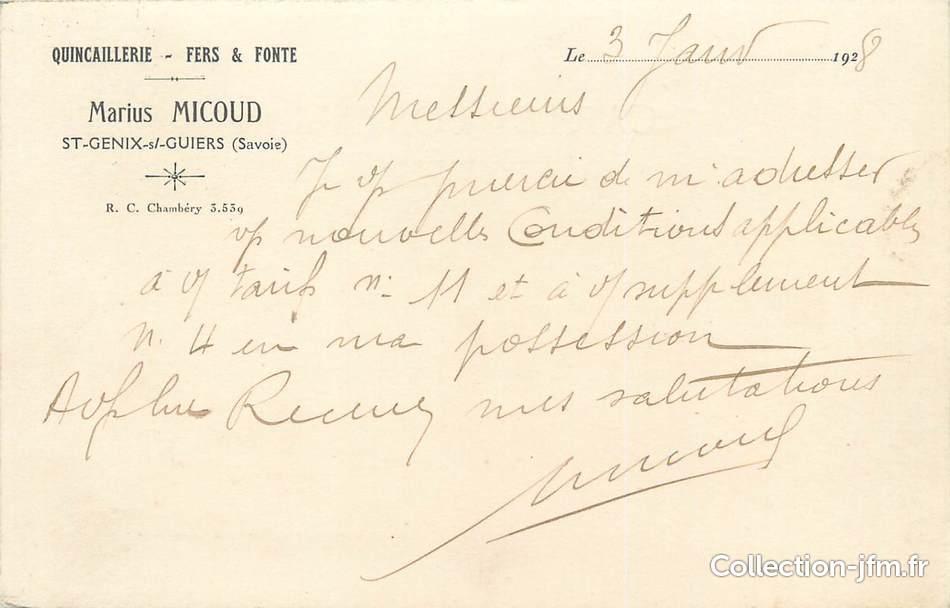 QUINCAILLERIE - FERS & FONTE
Marius MICOUD
ST-GENIX-s/-GUIERS (Savoie)
R. C. Chambéry 3.539
Le 3 Janv 1928
Messieurs
de m'adresser
nouvelles Conditions applicables
à v/ tarif n. 11 et à v/ supplement
n. 4 en ma possession
Recevez mes salutations
Micoud
Collection-jfm.fr